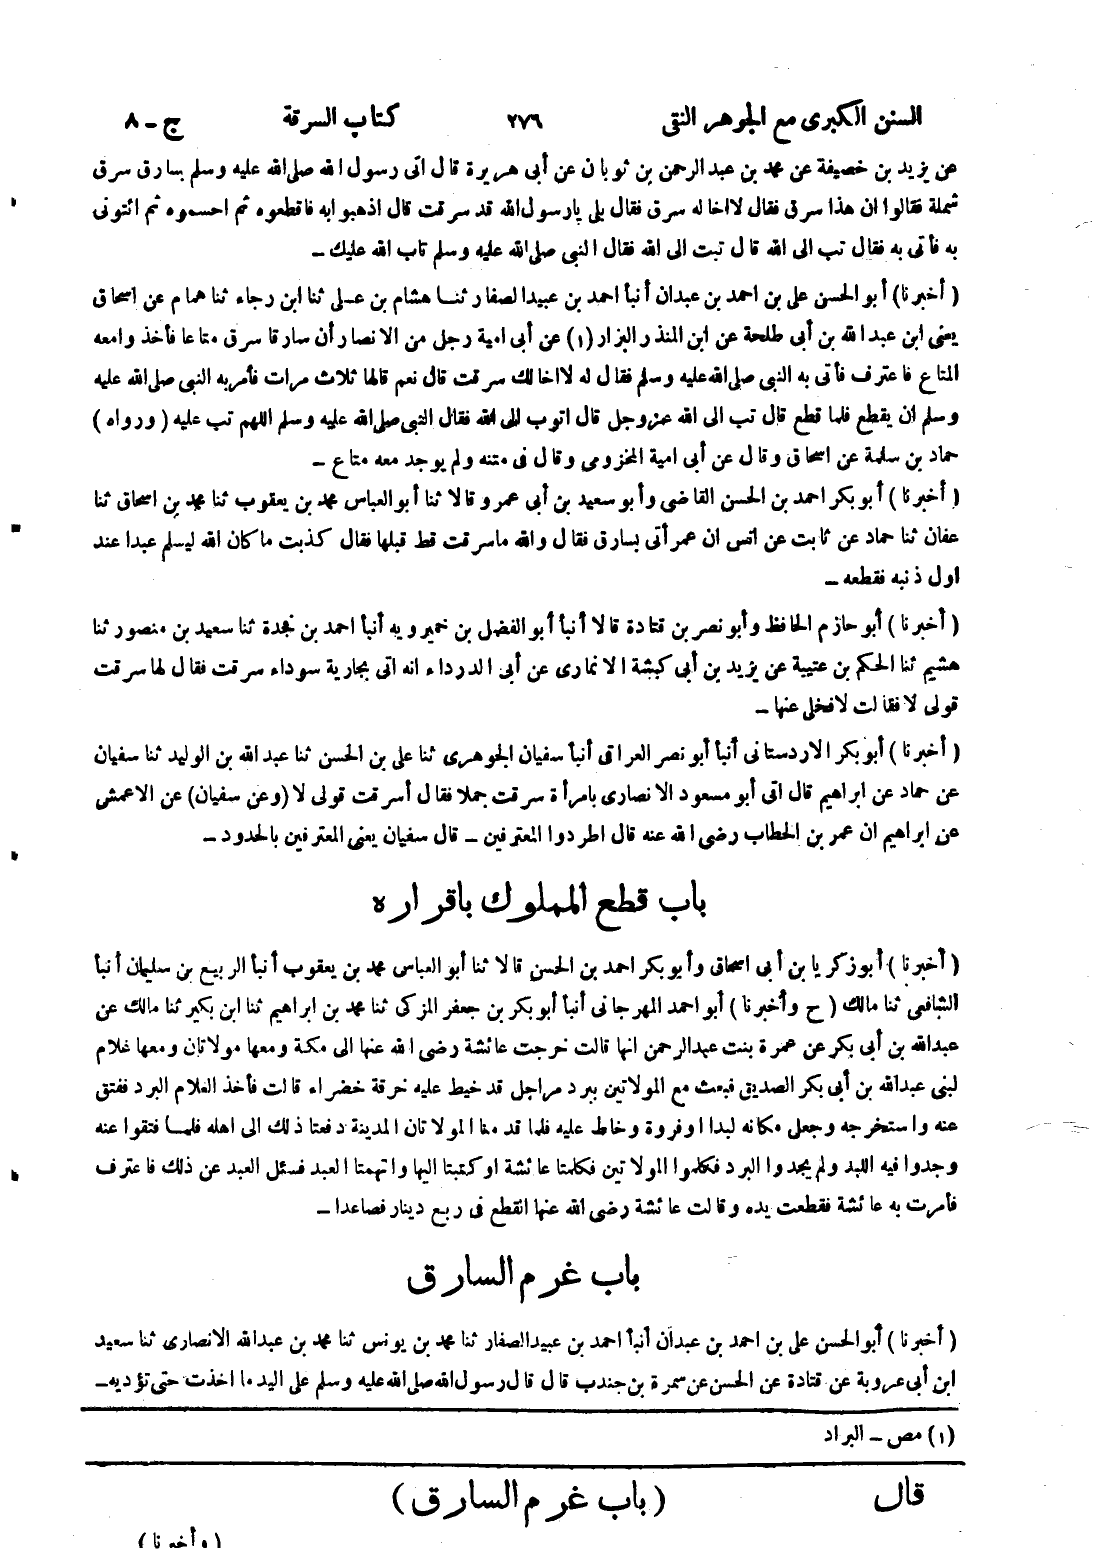 السنن الكبرى مع الجوهر النقى ٢٧٦ كتاب السرقة ج ـ ٨
عن يزيد بن خصيفة عن محمد بن عبد الرحمن بن ثوبان عن أبى هريرة قال اتى رسول الله صلى الله عليه وسلم بسارق سرق
شملة فقالوا ان هذا سرق فقال لا اخاله سرق فقال بلى يا رسول الله قد سرقت قال اذهبوا به فاقطعوه ثم احسموه ثم ائتونى
به فأتى به فقال تب الى الله قال تبت الى الله فقال النبى صلى الله عليه وسلم تاب الله عليك ـ
( أخبرنا ) أبو الحسن على بن احمد بن عبدان أنبأ احمد بن عبيد الصفار ثنا هشام بن على ثنا ابن رجاء ثنا همام عن اسحاق
يعنى ابن عبد الله بن أبى طلحة عن ابن المنذر البزار (١) عن أبى امية رجل من الانصار أن سارقا سرق متاعا فأخذ وامعه
المتاع فاعترف فأتى به النبى صلى الله عليه وسلم فقال له لا اخالك سرقت قال نعم قالها ثلاث مرات فأمر به النبى صلى الله عليه
وسلم ان يقطع فلما قطع قال تب الى الله عز وجل قال اتوب الى الله فقال النبى صلى الله عليه وسلم اللهم تب عليه ( ورواه )
حماد بن سلمة عن اسحاق وقال عن أبى امية المخزومى وقال فى متنه ولم يوجد معه متاع ـ
( أخبرنا ) أبو بكر احمد بن الحسن القاضى وأبو سعيد بن أبى عمرو قالا ثنا أبو العباس محمد بن يعقوب ثنا محمد بن اسحاق ثنا
عفان ثنا حماد عن ثابت عن انس ان عمر أتى بسارق فقال والله ما سرقت قط قبلها فقال كذبت ما كان الله ليسلم عبدا عند
اول ذنبه فقطعه ـ
( أخبرنا ) أبو حازم الحافظ وأبو نصر بن قتادة قالا أنبأ أبو الفضل بن خميرويه أنبأ احمد بن نجدة ثنا سعيد بن منصور ثنا
هشيم ثنا الحكم بن عتيبة عن يزيد بن أبى كبشة الانمارى عن أبى الدرداء انه اتى بجارية سوداء سرقت فقال لها سرقت
قولى لا فقالت لا فخلى عنها ـ
( أخبرنا ) أبو بكر الاردستانى أنبأ أبو نصر العراقى أنبأ سفيان الجوهرى ثنا على بن الحسن ثنا عبد الله بن الوليد ثنا سفيان
عن حماد عن ابراهيم قال اتى أبو مسعود الانصارى بامرأة سرقت جملا فقال أسرقت قولى لا (وعن سفيان) عن الاعمش
عن ابراهيم ان عمر بن الخطاب رضى الله عنه قال اطردوا المعترفين ـ قال سفيان يعنى المعترفين بالحدود ـ
باب قطع المملوك باقراره
( أخبرنا ) أبو زكريا بن أبى اسحاق وأبو بكر احمد بن الحسن قالا ثنا أبو العباس محمد بن يعقوب أنبأ الربيع بن سليمان أنبأ
الشافعى ثنا مالك ( ح وأخبرنا ) أبو احمد المهرجانى أنبأ أبو بكر بن جعفر المزكى ثنا محمد بن ابراهيم ثنا ابن بكير ثنا مالك عن
عبدالله بن أبى بكر عن عمرة بنت عبدالرحمن انها قالت خرجت عائشة رضى الله عنها الى مكة ومعها مولاتان ومعها غلام
لبنى عبدالله بن أبى بكر الصديق فبعث مع المولاتين ببرد مراجل قد خيط عليه خرقة خضراء قالت فأخذ الغلام البرد ففتق
عنه واستخرجه وجعل مكانه لبدا او فروة وخاط عليه فلما قدمنا المولاتان المدينة دفعتا ذلك الى اهله فلما فتقوا عنه
وجدوا فيه اللبد ولم يجدوا البرد فكلموا المولاتين فكلمتا عائشة او كتبتا اليها واتهمتا العبد فسئل العبد عن ذلك فاعترف
فأمرت به عائشة فقطعت يده وقالت عائشة رضى الله عنها القطع فى ربع دينار فصاعدا ـ
باب غرم السارق
( أخبرنا ) أبو الحسن على بن احمد بن عبدان أنبأ احمد بن عبيد الصفار ثنا محمد بن يونس ثنا محمد بن عبدالله الانصارى ثنا سعيد
ابن أبى عروبة عن قتادة عن الحسن عن سمرة بن جندب قال قال رسول الله صلى الله عليه وسلم على اليد ما اخذت حتى تؤديه ـ
(١) مص ـ البراد
قال ( باب غرم السارق )
( وأخبرنا )